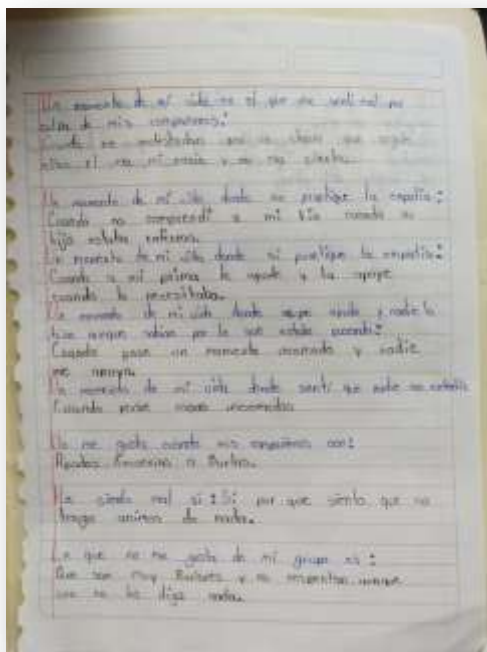 Un momento de mi vida en el que me sentí mal por
culpa de mis compañeros:
Cuando me molestaban con un chavo que según
ellos el me y no era cierto.
Un momento de mi vida donde no practique la empatía:
Cuando no comprendí a mi tía cuando su
hijo estaba enfermo.
Un momento de mi vida donde si practique la empatía:
Cuando a mi prima la ayude y la apoye
cuando lo necesitaba.
Un momento de mi vida donde ayuda y nadie lo
hizo aunque sabían por lo que estaba pasando:
Cuando pase un momento y nadie
me apoyo.
Un momento de mi vida donde sentí que nadie me
Cuando pase cosas incomodas
No me gusta cuando mis compañeros son:
Burlas.
Me siento mal si: Si por que siento que no
tengo animos de nada.
Lo que no me gusta de mi grupo es:
Que son muy y no respetan aunque
uno no les diga nada.